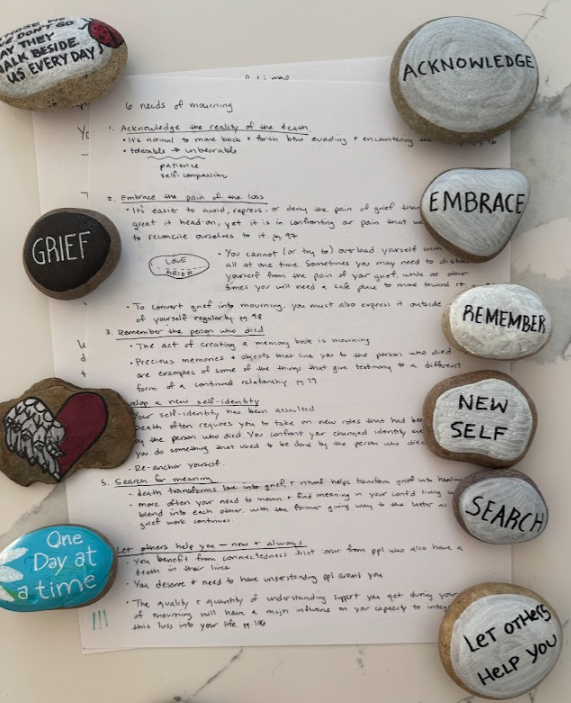 THOSE WE
DON'T GO
AWAY THEY
WALK BESIDE
US EVERY DAY
ACKNOWLEDGE
EMBRACE
GRIEF
REMEMBER
NEW
SELF
SEARCH
One
Day at
a time
LET OTHERS
HELP YOU
6 needs of mourning
1. Acknowledge the reality of the death
• It's normal to move back + forth btw evading + encountering the
• tolerable → unbearable
patience
self-compassion
2. Embrace the pain of the loss
• It's easier to avoid, repress, or deny the pain of grief than
greet it head-on, yet it is in confronting our pain that we
to reconcile ourselves to it. pg 92
LOVE
GRIEF
• You cannot (or try to) overload yourself with
all at one time. Sometimes you may need to
yourself from the pain of your grief, while at other
times you will need a safe place to move toward it
• To convert grief into mourning, you must also express it outside
of yourself regularly. pg 98
3. Remember the person who died
• The act of creating a memory book is mourning
• Precious memories + objects that link you to the person who died
are examples of some of the things that give testimony to a different
form of a continual relationship.
a new self-identity
Your self-identity has been assaulted
Death often requires you to take on new roles that had
by the person who died. You confront your changed identity
you do something that used to be done by the person who died
• Re-anchor yourself.
5. Search for meaning
• death transforms love into grief + ritual helps transform grief into healing
• more often your need to mourn + find meaning in your cont'd living
blend into each other, with the former giving way to the latter as
grief work continues.
Let others help you — now + always
• You benefit from connectedness that from ppl who also have a
death in their lives
• You deserve + need to have understanding ppl around you
• The quality + quantity of understanding support you get during your
of mourning will have a major influence on your capacity to
this loss into your life. pg 106
!!!